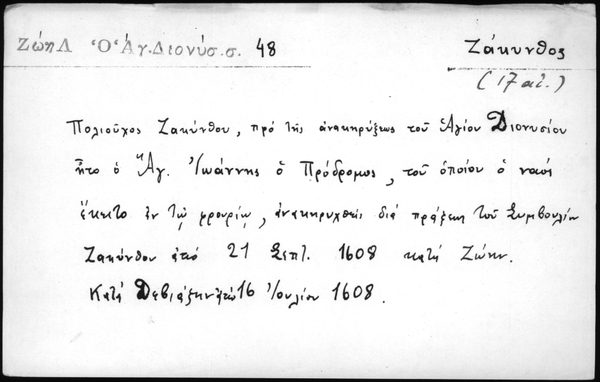 Ζώη Λ Ὁ Ἁγ. Διονύσ. σ. 48
Ζάκυνθος
(17 αἰ.)
Πολιοῦχος Ζακύνθου, πρό τῆς ἀνακηρύξεως τοῦ Ἁγίου Διονυσίου
ἦτο ὁ Ἅγ. Ἰωάννης ὁ Πρόδρομος, τοῦ ὁποίου ὁ ναός
ἔκειτο ἐν τῷ φρουρίῳ, ἀνακηρυχθείς διά πράξεως τοῦ Συμβουλίου
Ζακύνθου ἀπό 21 Σεπτ. 1608 κατά Ζώην.
Κατά Δεβιάζην ἀπό 16 Ἰουλίου 1608.